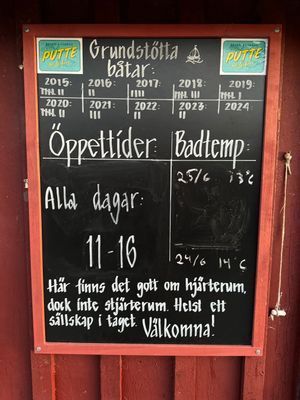 PUTTE
Grundstötta
båtar:
PUTTE
2015: 2016: 2017: 2018: 2019:
2020: 2021: 2022: 2023: 2024
II III II II
Öppettider: Badtemp:
25/6 13°C
Alla dagar:
11-16
24/6 14°C
Här finns det gott om hjärterum,
dock inte stjärterum. Helst ett
sällskap i taget. Välkomna!